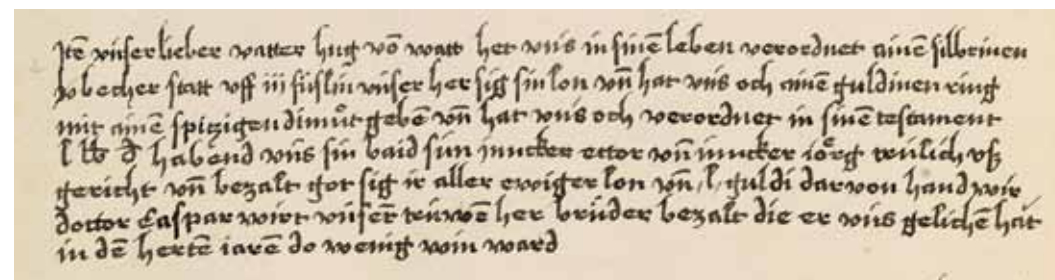 Itē vnser lieber vatter hug vō watt het vns in sinē leben verordnet ainen silbrinen
becher statt vff iii füslin vnser her sig sin lon vn̄ hat vns och ainē guldinen ring
mit ainē spitzigen dimůt gebē vn̄ hat vns och verordnet in sinē testament
l lb d habend vns sin baid sün juncker ector vn̄ juncker iörg trülich vß
gericht vn̄ bezalt got sig ir aller ewiger lon vn̄ l guldi dar von hand wir
doctor Caspar wirt vnserē trüwē her brüder bezalt die er vns gelichē hat
in dē hertē iarē do wenig win ward